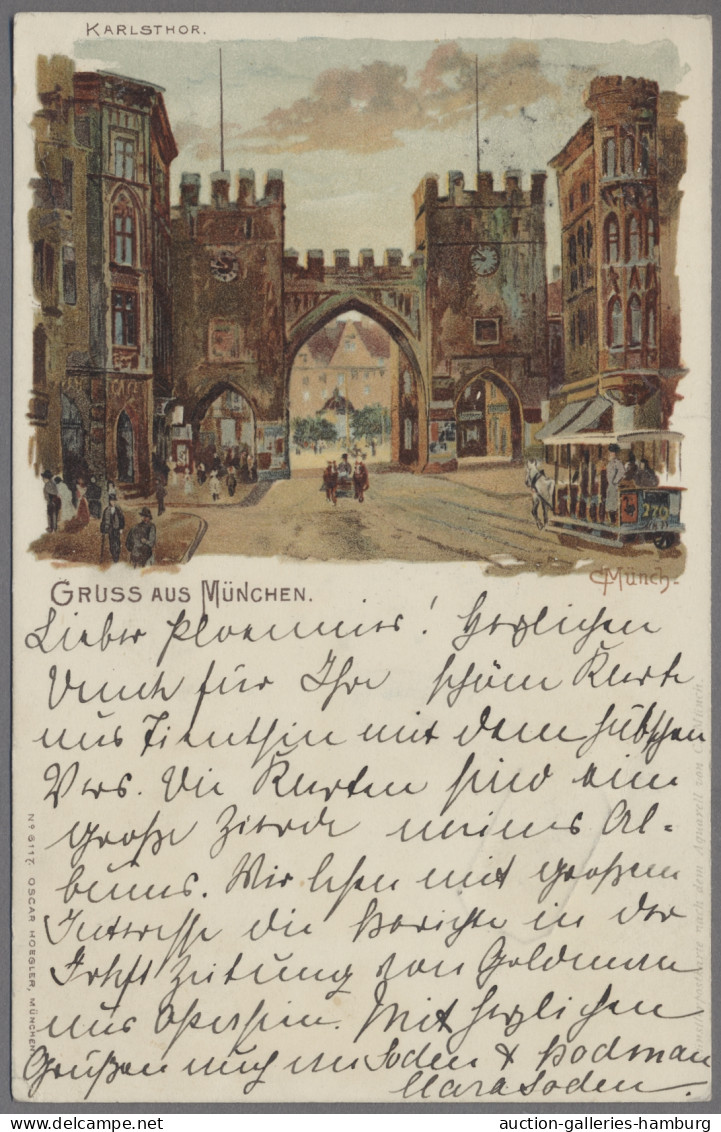 KARLSTHOR.
CAFE
270
C Münch.
GRUSS AUS MÜNCHEN.
Lieber Ploennies! Herzlichen
Dank für Ihre schöne Karte
aus Tientsin mit dem hübschen
Vers. Die Karten sind eine
große Zierde meines Al-
bums. Wir lesen mit großem
Interesse die Berichte in der
Frkft Zeitung von Goldman
aus Ostasien. Mit herzlichen
Grüßen auch an Soden & Bodman
Clara Soden.
Nº 5117. OSCAR HOEGLER, MÜNCHEN
Künstlerpostkarte nach dem Aquarell von C. Münch.
auction-galleries-hamburg